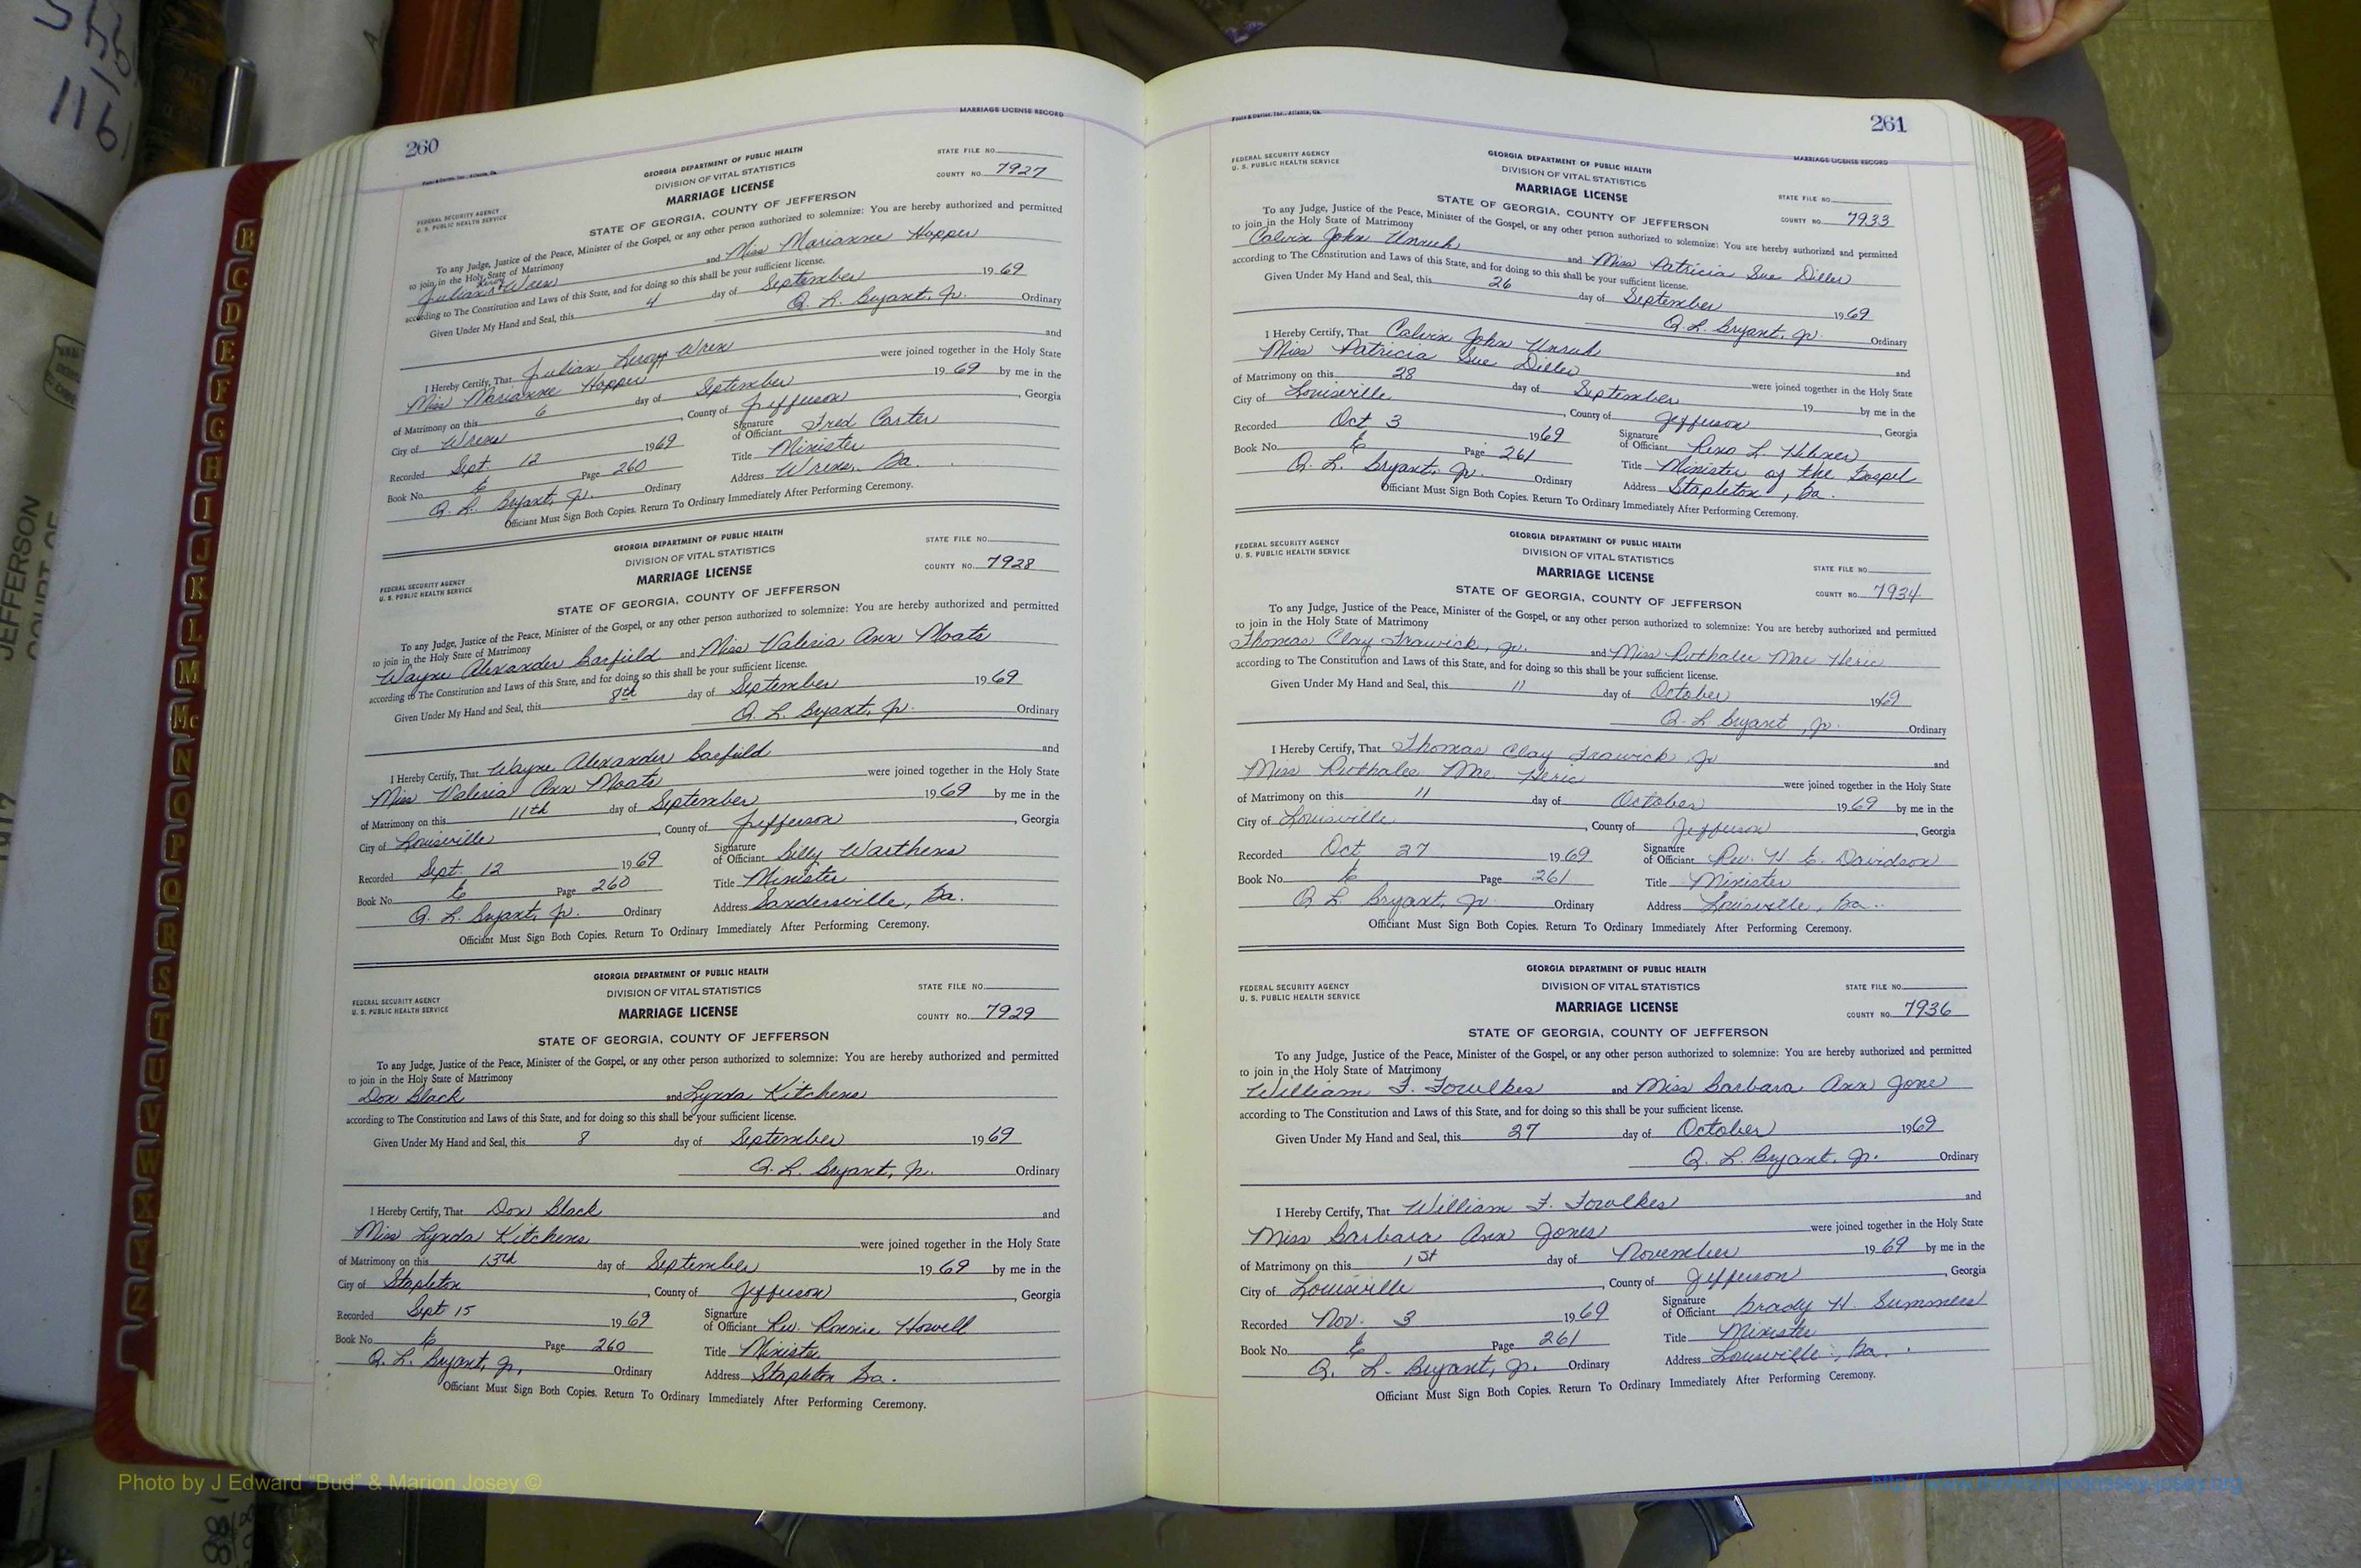 260
MARRIAGE LICENSE RECORD
GEORGIA DEPARTMENT OF PUBLIC HEALTH
DIVISION OF VITAL STATISTICS
MARRIAGE LICENSE
STATE OF GEORGIA, COUNTY OF JEFFERSON
FEDERAL SECURITY AGENCY
U. S. PUBLIC HEALTH SERVICE
STATE FILE NO.
COUNTY NO. 7927
To any Judge, Justice of the Peace, Minister of the Gospel, or any other person authorized to solemnize: You are hereby authorized and permitted
to join in the Holy State of Matrimony
Julian Leroy Wren and Miss Marianne Hopper
according to The Constitution and Laws of this State, and for doing so this shall be your sufficient license.
Given Under My Hand and Seal, this 4 day of September 1969
Q. L. Bryant, Jr. Ordinary
I Hereby Certify, That Julian Leroy Wren and
Miss Marianne Hopper were joined together in the Holy State
of Matrimony on this 6 day of September 1969 by me in the
City of Wrens, County of Jefferson, Georgia
Recorded Sept. 12 1969 Signature of Officiant Fred Carter
Book No. Page 260 Title Minister
Q. L. Bryant, Jr. Ordinary Address Wrens, Ga.
Officiant Must Sign Both Copies. Return To Ordinary Immediately After Performing Ceremony.
GEORGIA DEPARTMENT OF PUBLIC HEALTH
DIVISION OF VITAL STATISTICS
MARRIAGE LICENSE
STATE OF GEORGIA, COUNTY OF JEFFERSON
FEDERAL SECURITY AGENCY
U. S. PUBLIC HEALTH SERVICE
STATE FILE NO.
COUNTY NO. 7928
To any Judge, Justice of the Peace, Minister of the Gospel, or any other person authorized to solemnize: You are hereby authorized and permitted
to join in the Holy State of Matrimony
Wayne Alexander Barfield and Miss Valeria Ann Moats
according to The Constitution and Laws of this State, and for doing so this shall be your sufficient license.
Given Under My Hand and Seal, this 8th day of September 1969
Q. L. Bryant, Jr. Ordinary
I Hereby Certify, That Wayne Alexander Barfield and
Miss Valeria Ann Moats were joined together in the Holy State
of Matrimony on this 11th day of September 1969 by me in the
City of Louisville, County of Jefferson, Georgia
Recorded Sept. 12 1969 Signature of Officiant Billy Warthens
Book No. Page 260 Title Minister
Q. L. Bryant, Jr. Ordinary Address Sandersville, Ga.
Officiant Must Sign Both Copies. Return To Ordinary Immediately After Performing Ceremony.
GEORGIA DEPARTMENT OF PUBLIC HEALTH
DIVISION OF VITAL STATISTICS
MARRIAGE LICENSE
STATE OF GEORGIA, COUNTY OF JEFFERSON
FEDERAL SECURITY AGENCY
U. S. PUBLIC HEALTH SERVICE
STATE FILE NO.
COUNTY NO. 7929
To any Judge, Justice of the Peace, Minister of the Gospel, or any other person authorized to solemnize: You are hereby authorized and permitted
to join in the Holy State of Matrimony
Don Black and Lynda Kitchens
according to The Constitution and Laws of this State, and for doing so this shall be your sufficient license.
Given Under My Hand and Seal, this 8 day of September 1969
Q. L. Bryant, Jr. Ordinary
I Hereby Certify, That Don Black and
Miss Lynda Kitchens were joined together in the Holy State
of Matrimony on this 13th day of September 1969 by me in the
City of Stapleton, County of Jefferson, Georgia
Recorded Sept 15 1969 Signature of Officiant Rev. Ronnie Howell
Book No. Page 260 Title Minister
Q. L. Bryant, Jr. Ordinary Address Stapleton Ga.
Officiant Must Sign Both Copies. Return To Ordinary Immediately After Performing Ceremony.
261
MARRIAGE LICENSE RECORD
FEDERAL SECURITY AGENCY
U. S. PUBLIC HEALTH SERVICE
GEORGIA DEPARTMENT OF PUBLIC HEALTH
DIVISION OF VITAL STATISTICS
MARRIAGE LICENSE
STATE OF GEORGIA, COUNTY OF JEFFERSON
STATE FILE NO.
COUNTY NO. 7933
To any Judge, Justice of the Peace, Minister of the Gospel, or any other person authorized to solemnize: You are hereby authorized and permitted
to join in the Holy State of Matrimony
Calvin John Unruh and Miss Patricia Sue Diller
according to The Constitution and Laws of this State, and for doing so this shall be your sufficient license.
Given Under My Hand and Seal, this 26 day of September 1969
Q. L. Bryant, Jr. Ordinary
I Hereby Certify, That Calvin John Unruh
Miss Patricia Sue Diller and
were joined together in the Holy State
of Matrimony on this 28 day of September 19 by me in the
City of Louisville, County of Jefferson, Georgia
Recorded Oct 3 1969 Signature of Officiant Reno L. Hibner
Book No. Page 261 Title Minister of the Gospel
Q. L. Bryant, Jr. Ordinary Address Stapleton, Ga.
Officiant Must Sign Both Copies. Return To Ordinary Immediately After Performing Ceremony.
FEDERAL SECURITY AGENCY
U. S. PUBLIC HEALTH SERVICE
GEORGIA DEPARTMENT OF PUBLIC HEALTH
DIVISION OF VITAL STATISTICS
MARRIAGE LICENSE
STATE OF GEORGIA, COUNTY OF JEFFERSON
STATE FILE NO.
COUNTY NO. 7934
To any Judge, Justice of the Peace, Minister of the Gospel, or any other person authorized to solemnize: You are hereby authorized and permitted
to join in the Holy State of Matrimony
Thomas Clay Trawick, Jr. and Miss Ruthalee Mae Heric
according to The Constitution and Laws of this State, and for doing so this shall be your sufficient license.
Given Under My Hand and Seal, this 11 day of October 1969
Q. L. Bryant, Jr. Ordinary
I Hereby Certify, That Thomas Clay Trawick Jr and
Miss Ruthalee Mae Heric were joined together in the Holy State
of Matrimony on this 11 day of October 1969 by me in the
City of Louisville, County of Jefferson, Georgia
Recorded Oct 27 1969 Signature of Officiant Rev. H. E. Davidson
Book No. Page 261 Title Minister
Q L Bryant, Jr Ordinary Address Louisville, Ga.
Officiant Must Sign Both Copies. Return To Ordinary Immediately After Performing Ceremony.
FEDERAL SECURITY AGENCY
U. S. PUBLIC HEALTH SERVICE
GEORGIA DEPARTMENT OF PUBLIC HEALTH
DIVISION OF VITAL STATISTICS
MARRIAGE LICENSE
STATE OF GEORGIA, COUNTY OF JEFFERSON
STATE FILE NO.
COUNTY NO. 7936
To any Judge, Justice of the Peace, Minister of the Gospel, or any other person authorized to solemnize: You are hereby authorized and permitted
to join in the Holy State of Matrimony
William F. Fowlkes and Miss Barbara Ann Jone
according to The Constitution and Laws of this State, and for doing so this shall be your sufficient license.
Given Under My Hand and Seal, this 27 day of October 1969
Q. L. Bryant, Jr. Ordinary
I Hereby Certify, That William F. Fowlkes and
Miss Barbara Ann Jones were joined together in the Holy State
of Matrimony on this 1st day of November 1969 by me in the
City of Louisville, County of Jefferson, Georgia
Recorded Nov. 3 1969 Signature of Officiant Grady H. Summers
Book No. Page 261 Title Minister
Q. L. Bryant, Jr. Ordinary Address Louisville, Ga.
Officiant Must Sign Both Copies. Return To Ordinary Immediately After Performing Ceremony.
B
C
D
E
F
G
H
I
J
K
L
M
Mc
N
O
P
Q
R
S
T
U
V
W
X
Y
Z
JEFFERSON
Photo by J Edward "Bud" & Marion Josey ©